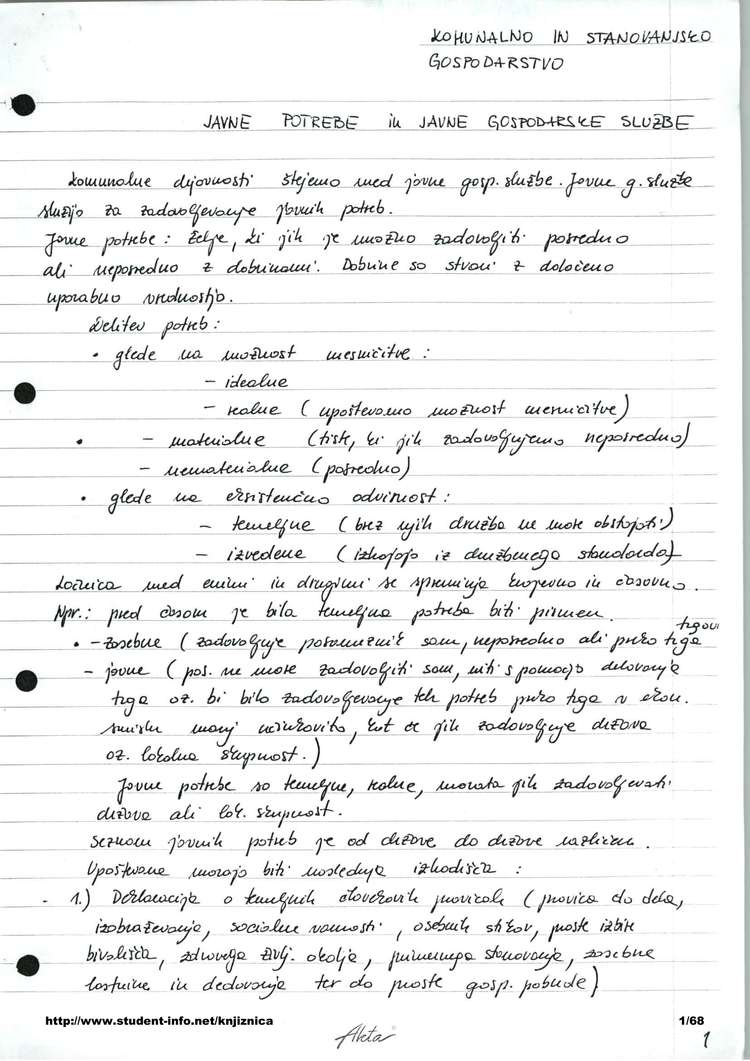 KOMUNALNO IN STANOVANJSKO
GOSPODARSTVO
JAVNE POTREBE in JAVNE GOSPODARSKE SLUŽBE
Komunalne dejavnosti štejemo med javne gosp. službe. Javne g. službe
služijo za zadovoljevanje javnih potreb.
Javne potrebe : želje, ki jih je možno zadovoljiti posredno
ali neposredno z dobrinami. Dobrine so stvari z določeno
uporabno vrednostjo.
Delitev potreb :
• glede na možnost uresničitve :
– idealne
– realne (upoštevamo možnost uresničitve)
• – materialne (tiste, ki jih zadovoljujemo neposredno)
– nematerialne (posredno)
• glede na eksistenčno odvisnost :
– temeljne (brez njih družba ne more obstajati)
– izvedene (izhajajo iz družbenega standarda)
Ločnica med enimi in drugimi se spreminja krajevno in časovno.
Npr.: pred časom je bila temeljna potreba biti pismen.
• – zasebne (zadovoljuje posameznik sam, neposredno ali preko trga
– javne (pos. ne more zadovoljiti sam, niti s pomočjo delovanja
trga oz. bi bilo zadovoljevanje teh potreb preko trga v ekon.
smislu manj učinkovito, kot če jih zadovoljuje država
oz. lokalna skupnost.)
Javne potrebe so temeljne, realne, morata jih zadovoljevati
država ali lok. skupnost.
Seznam javnih potreb je od države do države različen.
Upoštevana morajo biti naslednja izhodišča :
1.) Deklaracija o temeljnih človekovih pravicah (pravica do dela,
izobraževanja, socialne varnosti, osebnih stikov, proste izbire
bivališča, zdravega življ. okolja, primernega stanovanja, zasebne
lastnine in dedovanja ter do proste gosp. pobude)
http://www.student-info.net/knjiznica 1/68
Akta 1